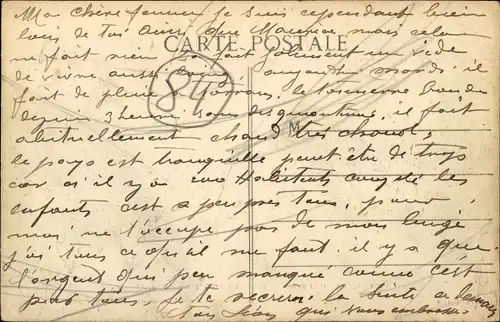 Ma chère femme je suis cependant bien
loin de toi ainsi que Maurice mais cela
CARTE POSTALE
ne fait rien fait joliment un vide
84
de vivre aussi aujourd'hui mardi il
fait de pluie a torrans, le tonnerre
depuis 3 heures sans discontinue, il fait
abituellement chaud très chaud,
le pays est tranquille peut être de trop
car s'il y a 200 Habitants compté les
enfants c'est a peu près tous, pour
moi ne t'occupe pas de mon linge
j'ai tous ce qu'il me faut. il y a que
l'argent qui peu manqué comme c'est
pas tous, je te recrirai la suite a demain
ton qui vous embrasse